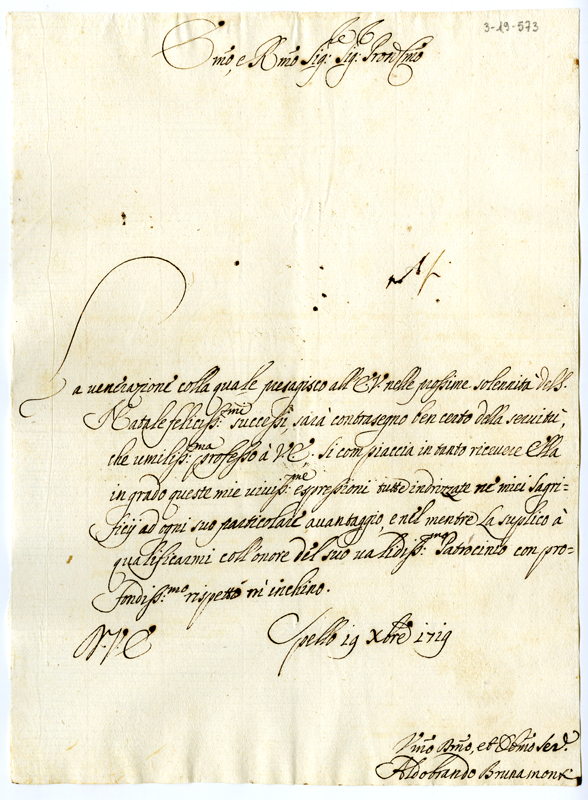 3-19-573
Emo, e Rmo Sig: Sig: Pron Cmo
La venerazione colla quale presagisco all'E.V. nelle prossime solennità dell S.
Natale feliciss:me successi, sarà contrasegno ben certo della servitù,
che umiliss:ma professo à V.E. Si compiaccia in tanto ricevere Ella
in grado queste mie viviss:me espressioni tutte indrizzate ne miei sagri-
ficij ad ogni suo particolare avantaggio, e nel mentre la suplico à
qualificarmi coll'onore del suo validiss:mo Patrocinio con pro-
fondiss:mo rispetto m'inchino.
D. V. E
Spello 19 Xbre 1719
Vmo Dmo, et Obmo Ser.
Aldobrando Brunamonti